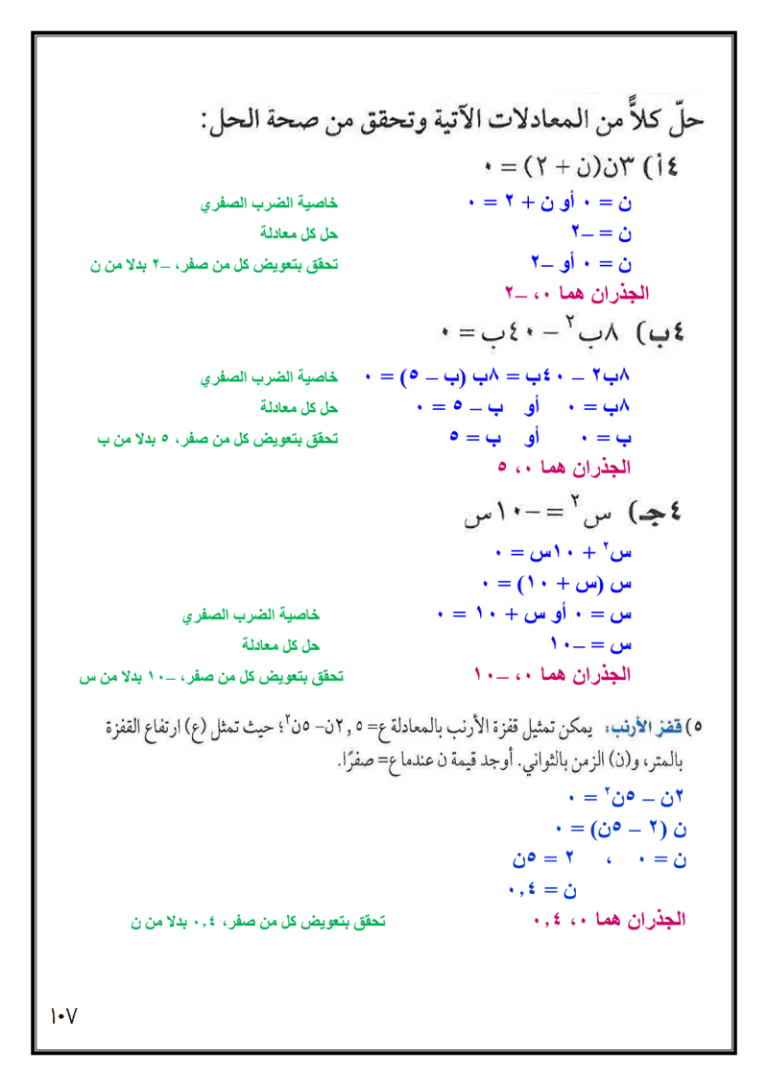 حلّ كلاًّ من المعادلات الآتية وتحقق من صحة الحل:
٤أ) ٣ن(ن + ٢) = ٠
ن = ٠ أو ن + ٢ = ٠ خاصية الضرب الصفري
ن = –٢ حل كل معادلة
ن = ٠ أو –٢ تحقق بتعويض كل من صفر، –٢ بدلا من ن
الجذران هما ٠، –٢
٤ب) ٨ب٢ – ٤٠ب = ٠
٨ب٢ – ٤٠ب = ٨ب (ب – ٥) = ٠ خاصية الضرب الصفري
٨ب = ٠ أو ب – ٥ = ٠ حل كل معادلة
ب = ٠ أو ب = ٥ تحقق بتعويض كل من صفر، ٥ بدلا من ب
الجذران هما ٠، ٥
٤جـ) س٢ = –١٠س
س٢ + ١٠س = ٠
س (س + ١٠) = ٠
س = ٠ أو س + ١٠ = ٠ خاصية الضرب الصفري
س = –١٠ حل كل معادلة
الجذران هما ٠، –١٠ تحقق بتعويض كل من صفر، –١٠ بدلا من س
٥) قفز الأرنب: يمكن تمثيل قفزة الأرنب بالمعادلة ع= ٢,٥ن– ٥ن٢؛ حيث تمثل (ع) ارتفاع القفزة
بالمتر، و(ن) الزمن بالثواني. أوجد قيمة ن عندما ع= صفرًا.
٢ن – ٥ن٢ = ٠
ن (٢ – ٥ن) = ٠
ن = ٠ ، ٢ = ٥ن
ن = ٠,٤
الجذران هما ٠، ٠,٤ تحقق بتعويض كل من صفر، ٠,٤ بدلا من ن
١٠٧